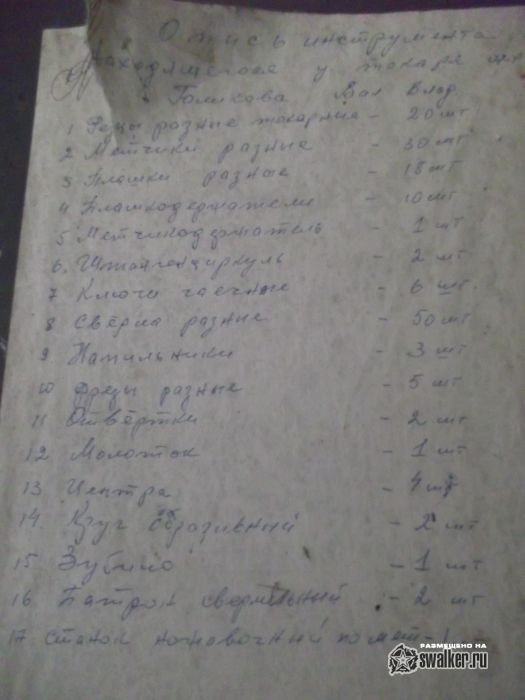 Опись инструмента
Находящегося у токаря
Голикова Вал Влад
1 Резцы разные токарные - 20 шт
2 Метчики разные - 30 шт
3 Плашки разные - 18 шт
4 Плашкодержатели - 10 шт
5 Метчикодержатель - 1 шт
6. Штангенциркуль - 2 шт
7 Ключи гаечные - 6 шт.
8 Свёрла разные - 50 шт
9 Напильники - 3 шт
10 Фрезы разные - 5 шт
11 Отвёртки - 2 шт
12 Молоток - 1 шт
13 Центра - 4 шт
14. Круг абразивный - 2 шт
15 Зубило - 1 шт
16 Патрон сверлильный - 2 шт
17 станок ножовочный по мет -
РАЗМЕЩЕНО НА
swalker.ru